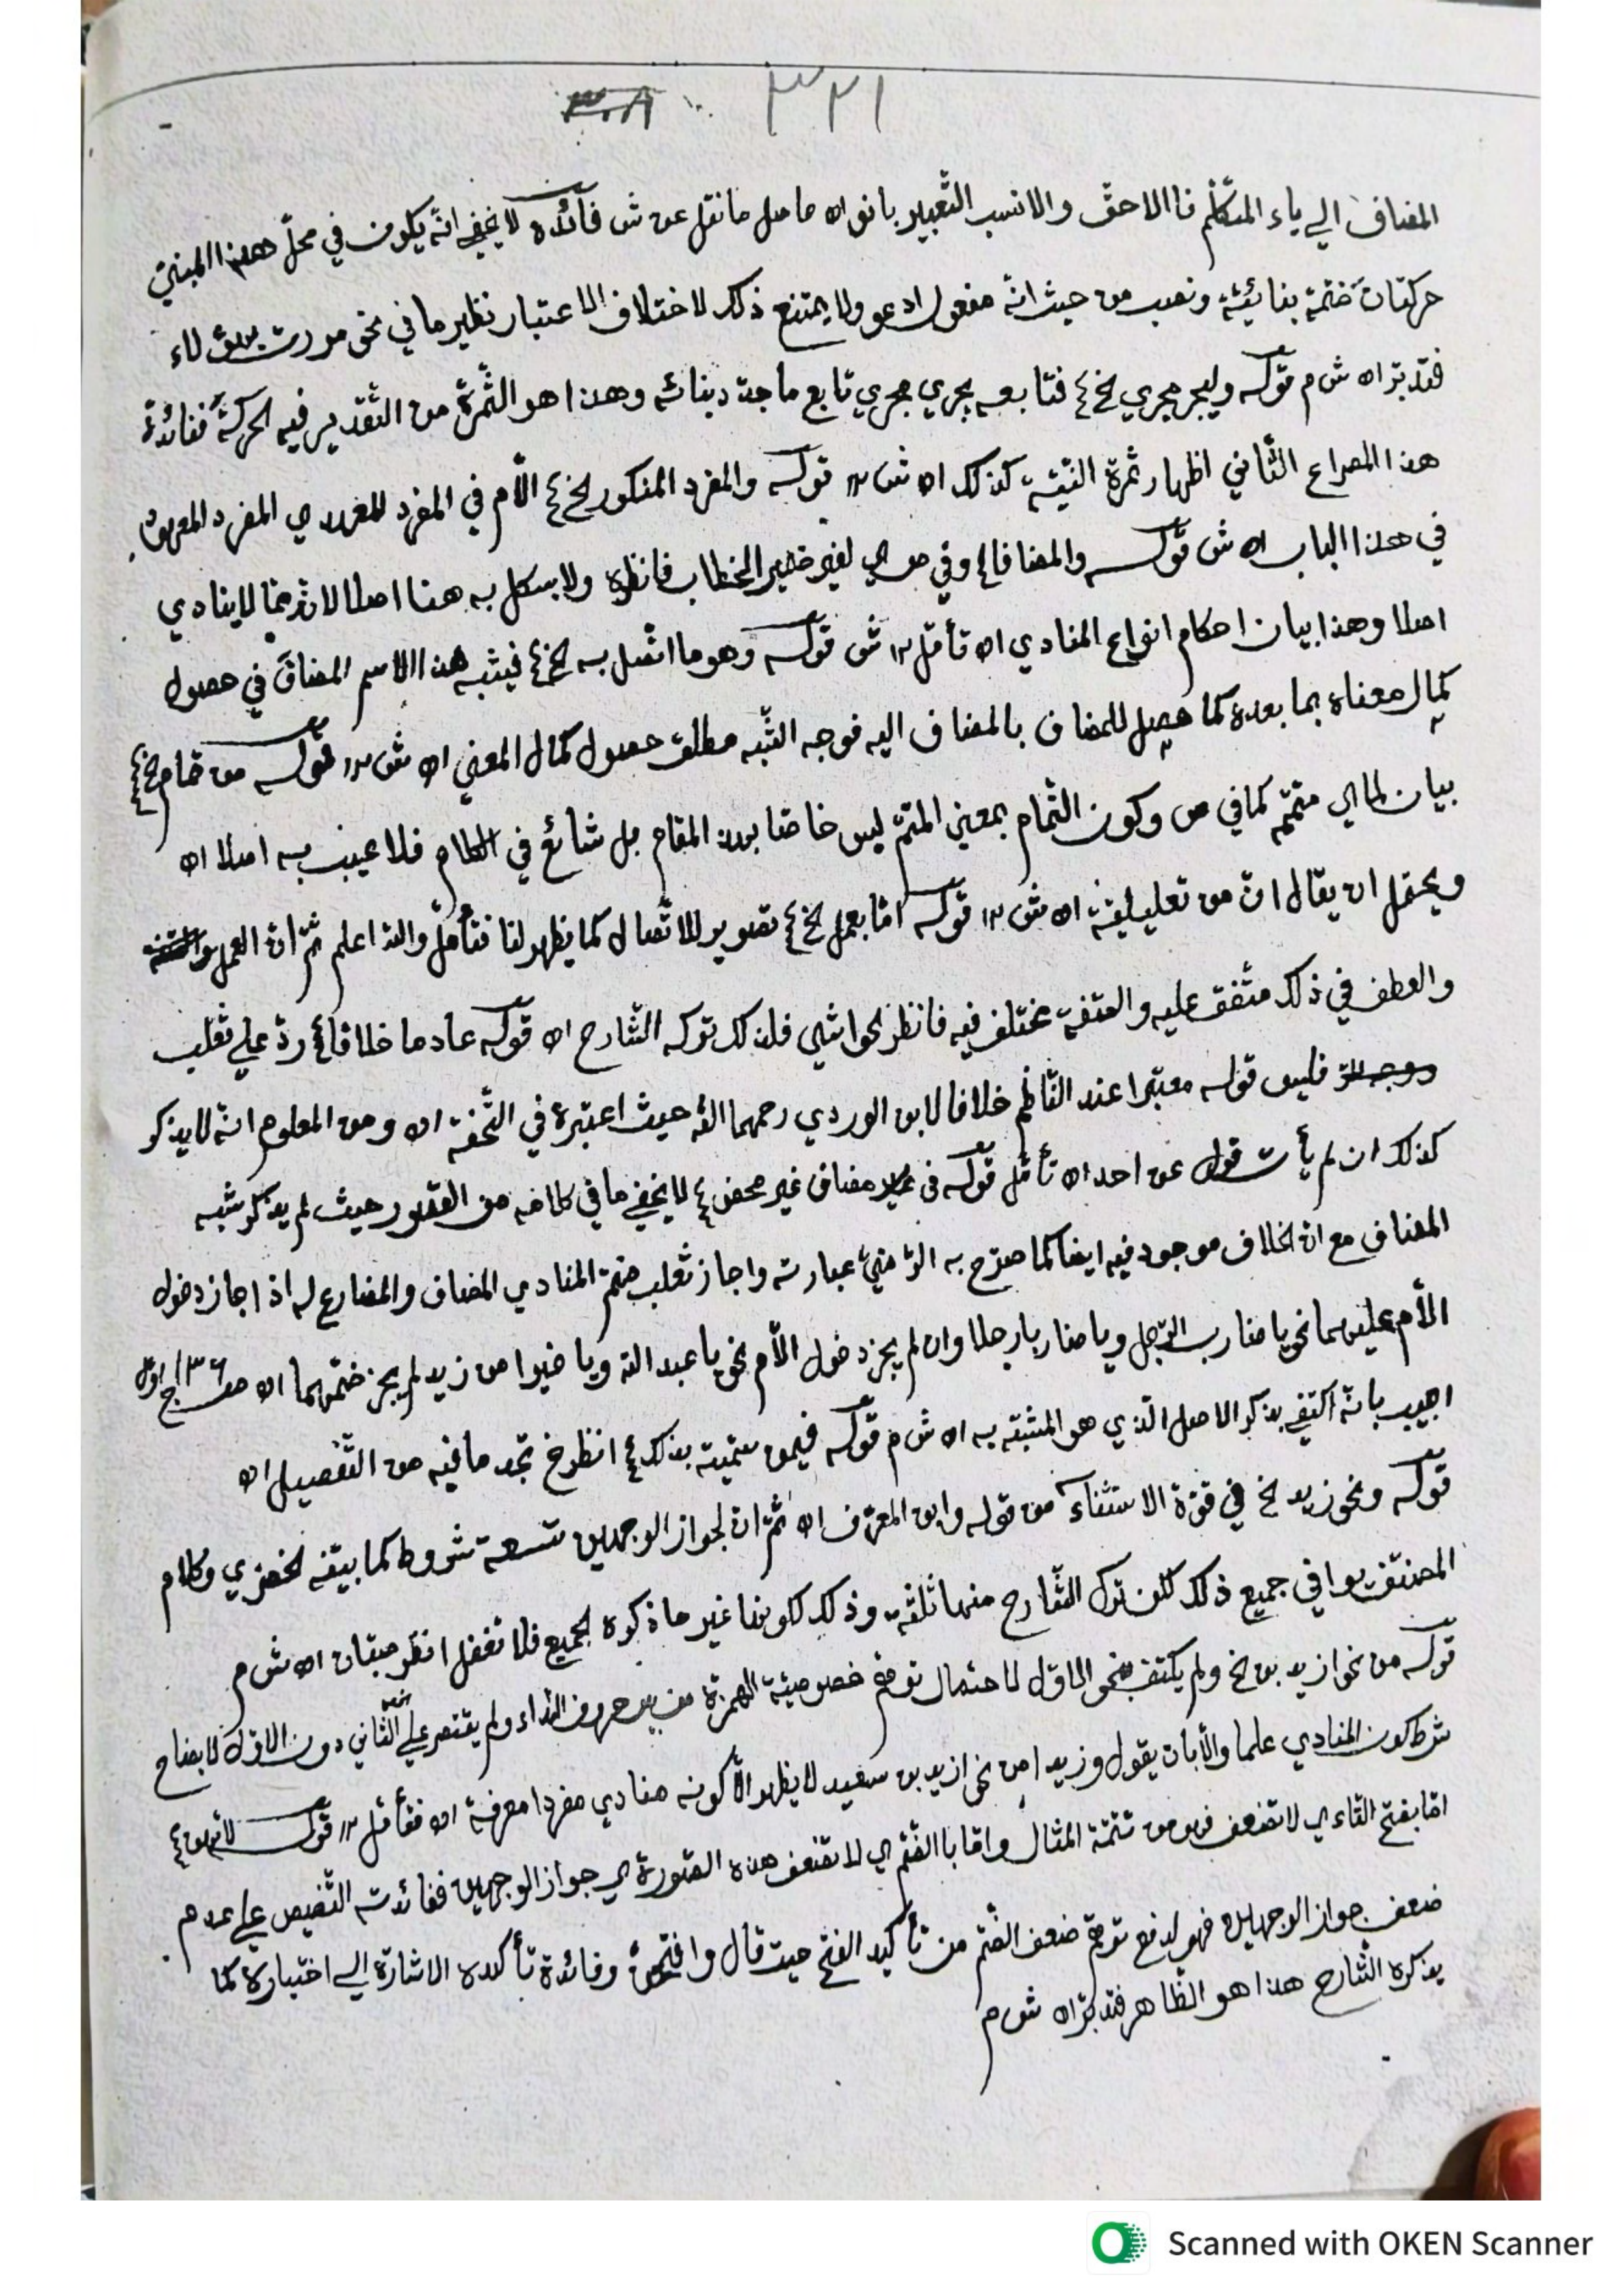 ٣٢١ ٣٠٨
المضاف الي ياء المتكلّم فالاحقّ والانسب التّعبير بانو اه حاصل ما نقل عن ش فآئده لا يخفي انّه يكون في محلّ هذا المبنيّ
حركتان ضمّة بنائيّة ونصب من حيث انّه مفعول ادعو ولا يمتنع ذلك لاختلاف الاعتبار نظير ما في نحو مررت بهؤلاء
فتدبّر اه ش م قوله وليجر مجري الخ ۽ فتابعه يجري مجري تابع ما جدّد بنائه وهذا هو الثّمرة من التّقدير فيه الحركة ففائدة
هذا المصراع الثّاني اظهار ثمرة النّيّة كذلك اه ش ١٢ قوله والمفرد المنكور الخ ۽ الّام في المفرد للعهد اي المفرد المعهود
في هذا الباب اه ش قوله والمضافا ۽ وفي ص اي لغير ضمير الخطاب فانظره ولا يشكل به هنا اصلا لانّه ممّا لا ينادي
اصلا وهذا بيان احكام انواع المنادي اه تأمّل ١٢ ش قوله وهو ما اتّصل به الخ ۽ فيشبه هذا الاسم المضاف في حصول
كمال معناه بما بعده كما يحصل للمضاف بالمضاف اليه فوجه الشّبه مطلق حصول كمال المعني اه ش ١٢ قوله من تمام الخ ۽
بيان لما اي متمّم كما في ص وكون التّمام بمعني المتمّ ليس خاصّا بهذ المقام بل شائع في الكلام فلا عيب به اصلا اه
ويحتمل ان يقال انّ من تعليليّة اه ش ١٢ قوله امّا بعمل الخ ۽ تصوير للاتّصال كما يظهر لنا فتأمّل والله اعلم ثمّ انّ العمل
والعطف في ذلك متّفق عليه والصّفة مختلف فيه فانظر الحواشي فلذلك تركه الشّارح اه قوله عادما خلافا ۽ ردّ علي ثعلب
فليس قوله معتبرا عند النّاظم خلافا لابن الوردي رحمهما الله حيث اعتبره في التّحفة اه ومن المعلوم انّه لا يذكر
كذلك ان لم يأت قول عن احد اه تأمّل قوله في مضاف غير محض ۽ لا يخفي ما في كلامه من القصور حيث لم يذكر شبه
المضاف مع انّ الخلاف موجود فيه ايضا كما صرّح به الرّضيّ عبارته واجاز ثعلب ضمّ المنادي المضاف والمضارع له اذ اجاز دخول
الّام عليهما نحو يا ضارب الرّجل ويا ضاربا رجلا وان لم يجز دخول الّام نحو يا عبد الله ويا خيرا من زيد لم يجز ضمّهما اه ص ١٣٦ ج اوّل
اجيب بانّه اكتفي بذكر الاصل الّذي هو المشبّه به اه ش م قوله فيمن سمّيته بذلك ۽ انظر خ تجد ما فيه من التّفصيل اه
قوله ونحو زيد الخ في قوّة الاستثناء من قوله وابن المعرّف اه ثمّ انّ لجواز الوجهين تسعة شروط كما بيّنه الخضري وكلام
المصنّف واف جميع ذلك لكن ترك الشّارح منها ثلثة وذلك لكونها غير ما ذكره الجميع فلا تغفل انظر صبّان اه ش م
قوله من نحو ازيد بن الخ ولم يكتف بنحو الاوّل لاحتمال توهّم خصوصيّة الهمزة من بين حروف النّداء ولم يقتصر علي الثّاني دون الاوّل لايضاح
شرط كون المنادي علما والّا بان يقول وزيدا من نحو ازيد بن سعيد لا يظهر الّا كونه منادي مفردا معرفة اه فتأمّل ١٢ قوله لا تهن ۽
امّا بفتح التّاء اي لا تضعف فهو من تتمّة المثال وامّا باالضّمّ اي لا تضعف هذه الصّورة اي جواز الوجهين ففائدته التّنصيص علي عدم
ضعف جواز الوجهين فهو لدفع توهّم ضعف الضّمّ من تأكيد الفتح حيث قال وافتحنّ وفائدة تأكده الاشارة الي اختياره كما
يذكره الشّارح هذا هو الظّاهر فتدبّر اه ش م
Scanned with OKEN Scanner